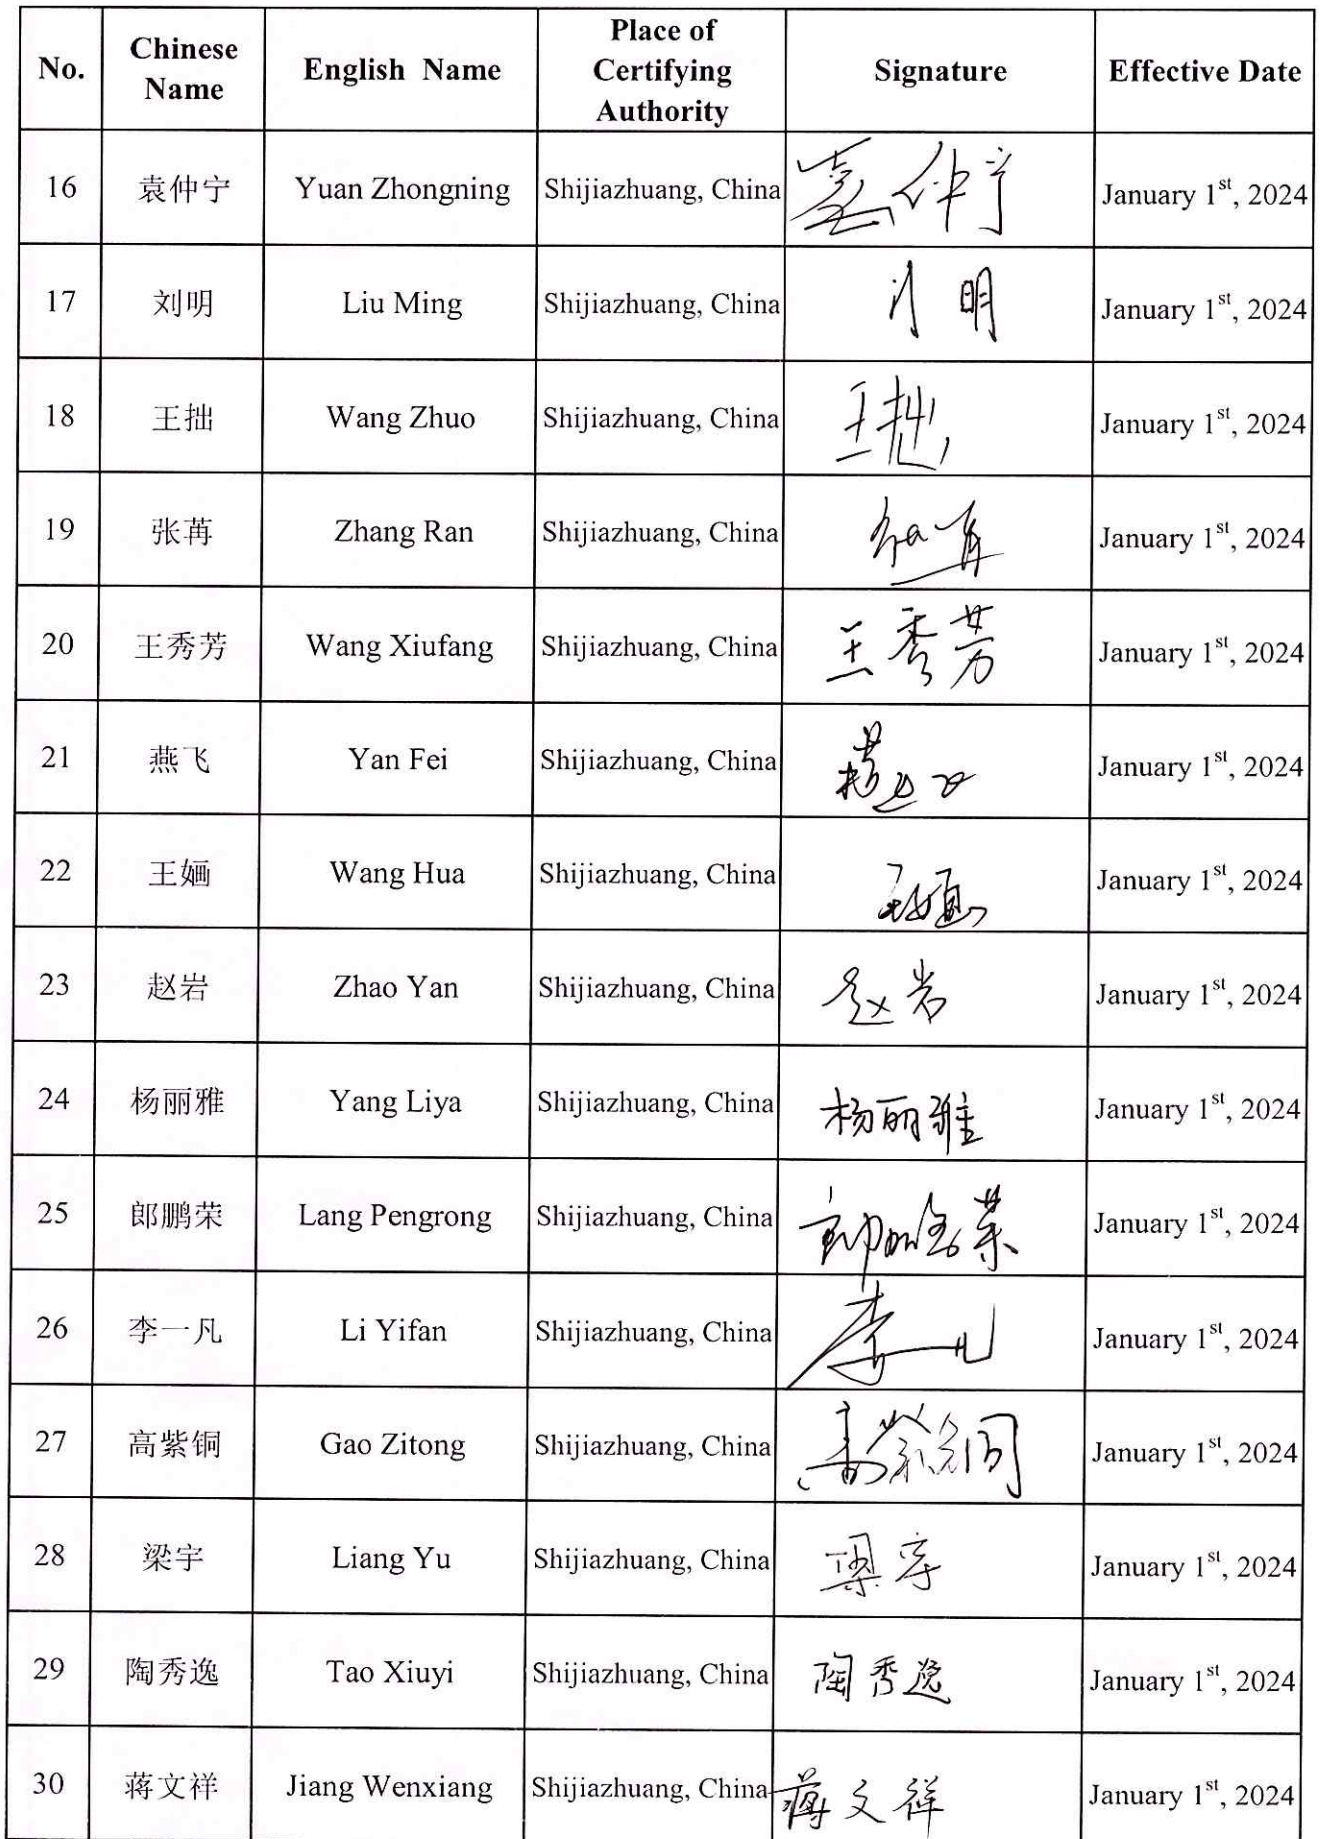 No. Chinese Name English Name Place of Certifying Authority Signature Effective Date
16 袁仲宁 Yuan Zhongning Shijiazhuang, China 袁仲宁 January 1st, 2024
17 刘明 Liu Ming Shijiazhuang, China 刘明 January 1st, 2024
18 王拙 Wang Zhuo Shijiazhuang, China 王拙 January 1st, 2024
19 张苒 Zhang Ran Shijiazhuang, China January 1st, 2024
20 王秀芳 Wang Xiufang Shijiazhuang, China 王秀芳 January 1st, 2024
21 燕飞 Yan Fei Shijiazhuang, China 燕飞 January 1st, 2024
22 王婳 Wang Hua Shijiazhuang, China 王婳 January 1st, 2024
23 赵岩 Zhao Yan Shijiazhuang, China 赵岩 January 1st, 2024
24 杨丽雅 Yang Liya Shijiazhuang, China 杨丽雅 January 1st, 2024
25 郎鹏荣 Lang Pengrong Shijiazhuang, China 郎鹏荣 January 1st, 2024
26 李一凡 Li Yifan Shijiazhuang, China 李一凡 January 1st, 2024
27 高紫铜 Gao Zitong Shijiazhuang, China 高紫铜 January 1st, 2024
28 梁宇 Liang Yu Shijiazhuang, China 梁宇 January 1st, 2024
29 陶秀逸 Tao Xiuyi Shijiazhuang, China 陶秀逸 January 1st, 2024
30 蒋文祥 Jiang Wenxiang Shijiazhuang, China 蒋文祥 January 1st, 2024